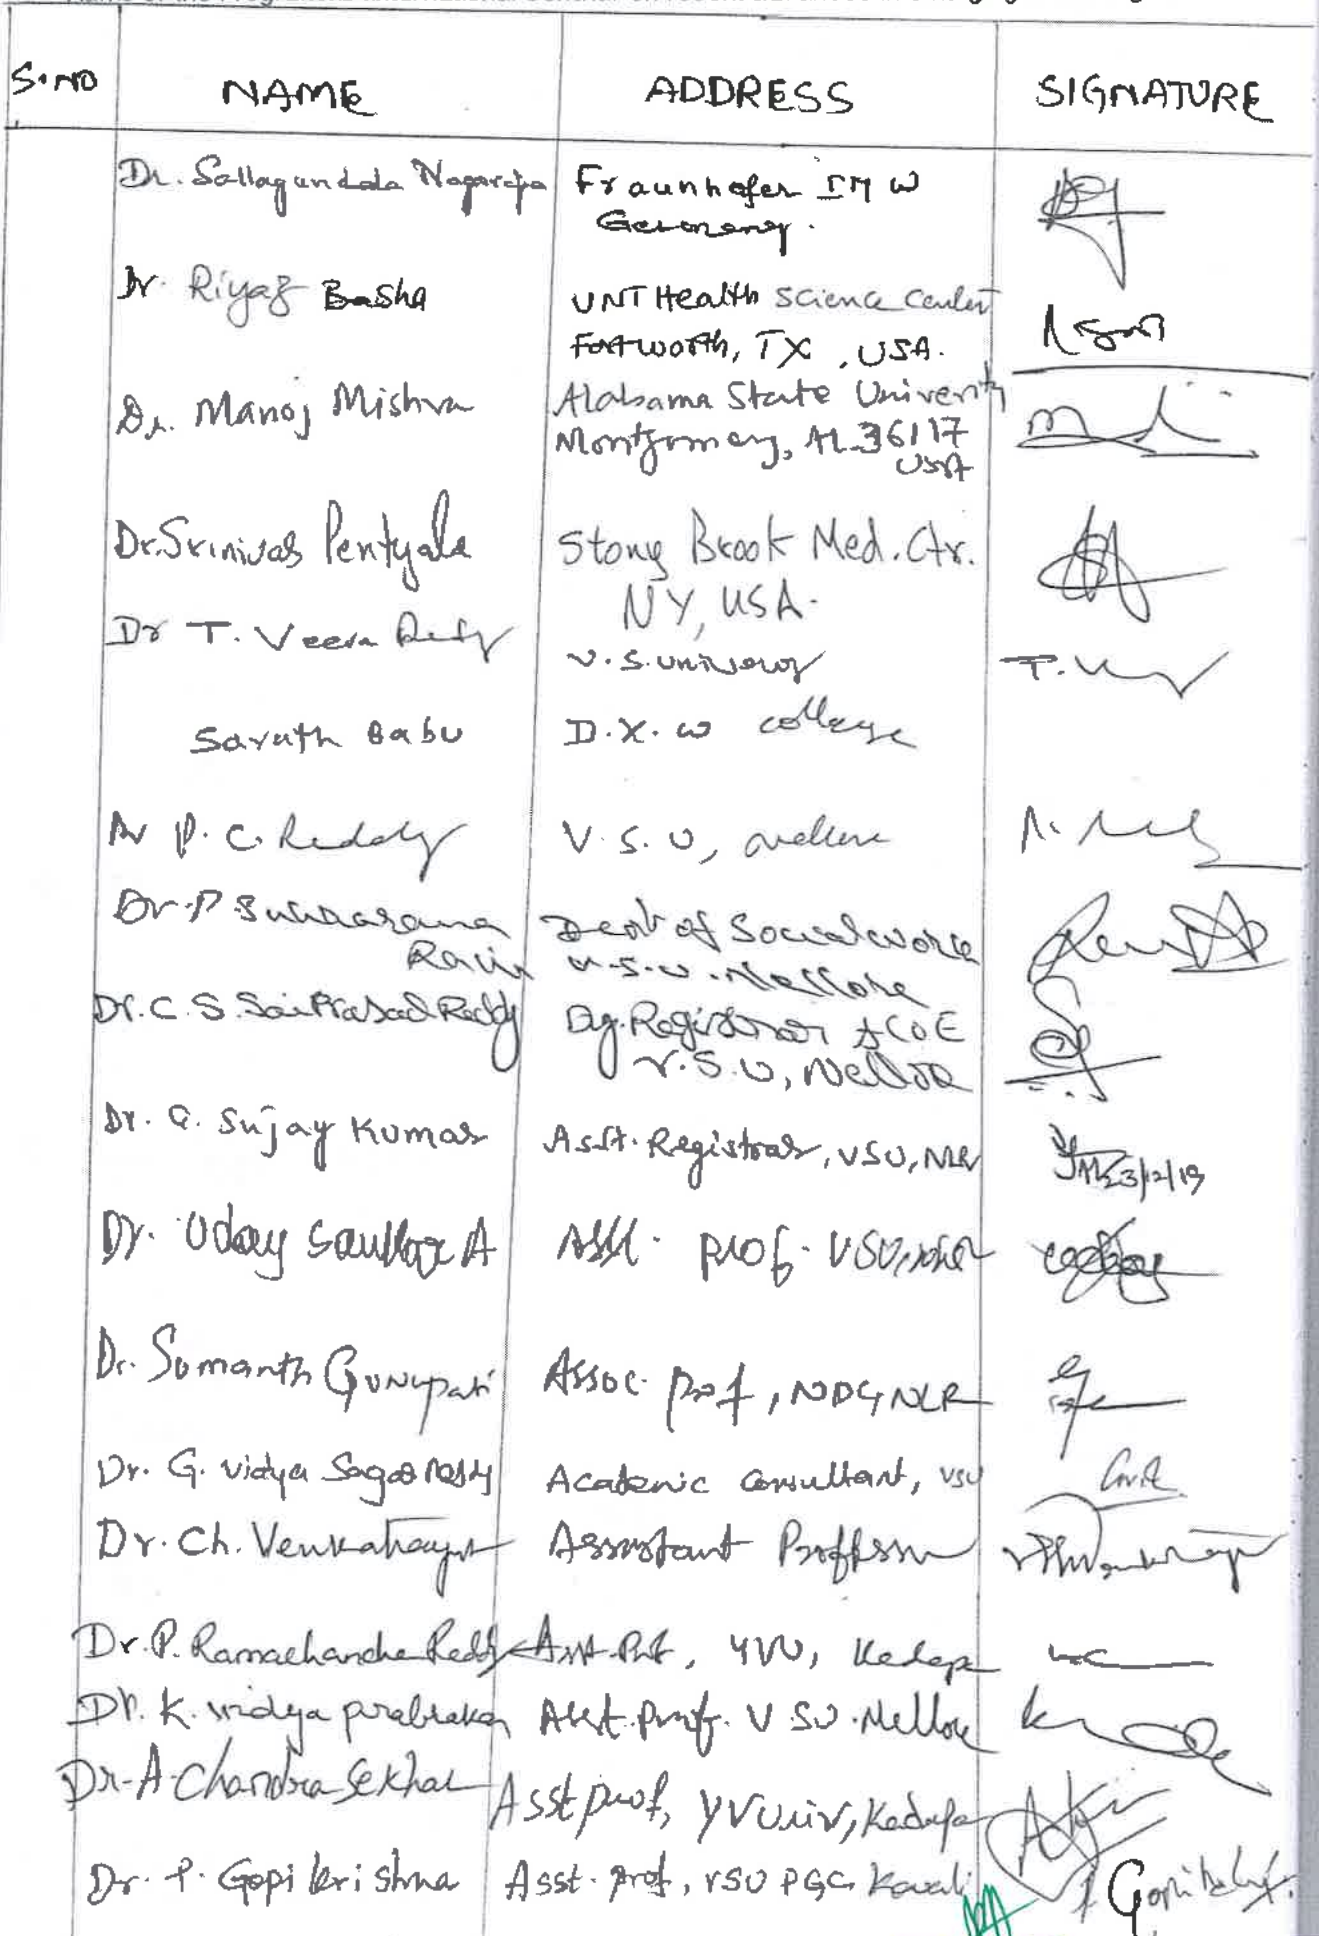 S.NO NAME ADDRESS SIGNATURE
Dr. Sallagundala Nagaraja Fraunhofer IMW
Germany.
Dr. Riyaz Basha UNT Health Science Center
Fortworth, TX, USA.
Dr. Manoj Mishra Alabama State University
Montgomery, AL 36117
USA
Dr. Srinivas Pentyala Stony Brook Med. Ctr.
NY, USA.
Dr T. Veera Reddy V.S. University
Sarath Babu D.K.W college
Dr P. C. Reddy V.S.U, Nellore
Dr. P Dept of Social work
V.S.U. Nellore
Dr. C. S. Sai Prasad Reddy Dy. Registrar ACOE
V.S.U, Nellore
Dr. Sujay Kumar Asst. Registrar, VSU, NLR 23/12/19
Dr. Uday A Asst. Prof. VSU,
Dr. Sumanth Gunupati Assoc. Prof, NDC, NLR
Dr. G. Vidya Sagar Reddy Academic Consultant, VSU
Dr. Ch. Venkatrayulu Assistant Proffssor
Dr. P. Ramachandra Reddy Asst. Prof, YVU, Kadapa
Dr. K. vidya prabhakar Asst. Prof. VSU. Nellore
Dr. A. Chandra Sekhar Asst prof, YV Univ, Kadapa
Dr. P. Gopikrishna Asst. Prof, VSU PGC, Kavali